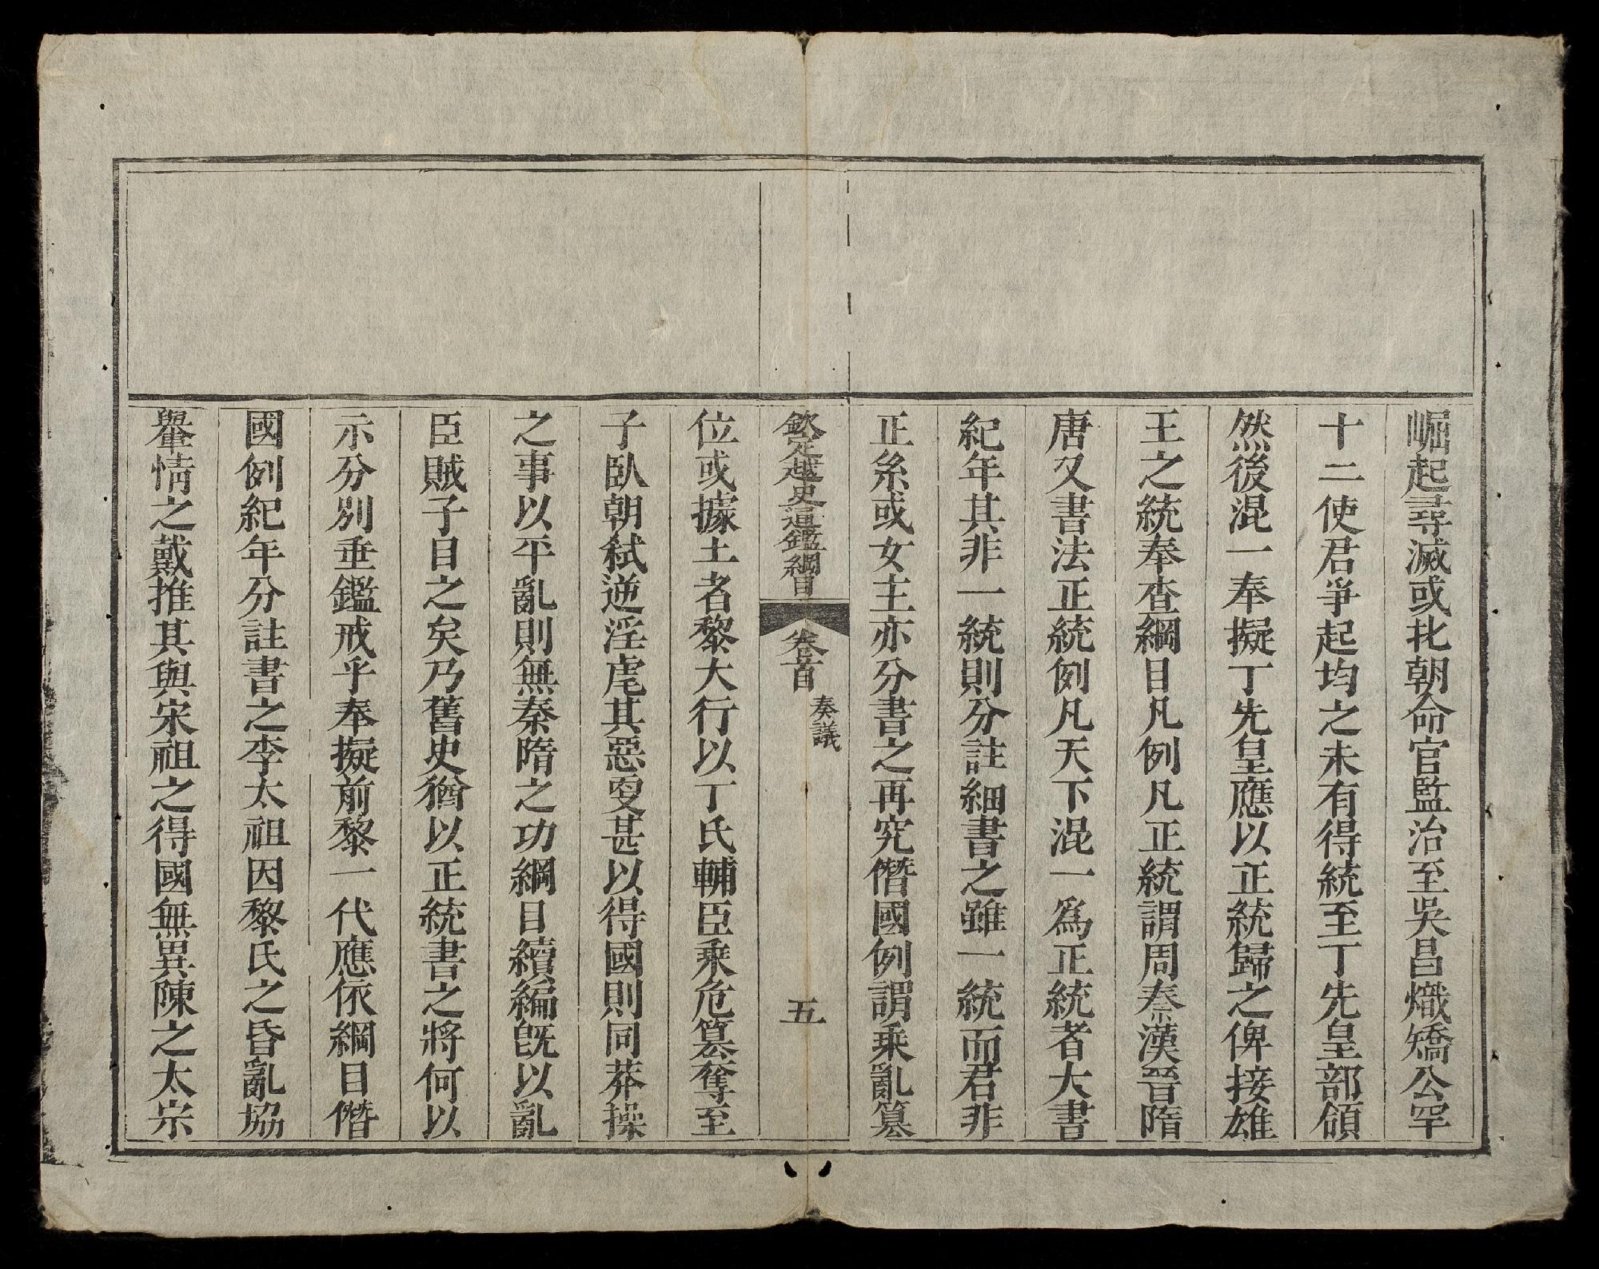 崛起尋滅或北朝命官監治至吳昌熾矯公罕
十二使君爭起均之未有得統至丁先皇部領
然後混一奉擬丁先皇應以正統歸之俾接雄
王之統奉查綱目凡例凡正統謂周秦漢晉隋
唐又書法正統例凡天下混一爲正統者大書
紀年其非一統則分註細書之雖一統而君非
正系或女主亦分書之再究僭國例謂乘亂篡
欽定越史通鑑綱目
卷首
奏議
五
位或據土者黎大行以丁氏輔臣乘危篡奪至
子臥朝弑逆淫虐其惡更甚以得國則同莽操
之事以平亂則無秦隋之功綱目續編旣以亂
臣賊子目之矣乃舊史猶以正統書之將何以
示分別垂鑑戒乎奉擬前黎一代應依綱目僭
國例紀年分註書之李太祖因黎氏之昏亂協
羣情之戴推其與宋祖之得國無異陳之太宗